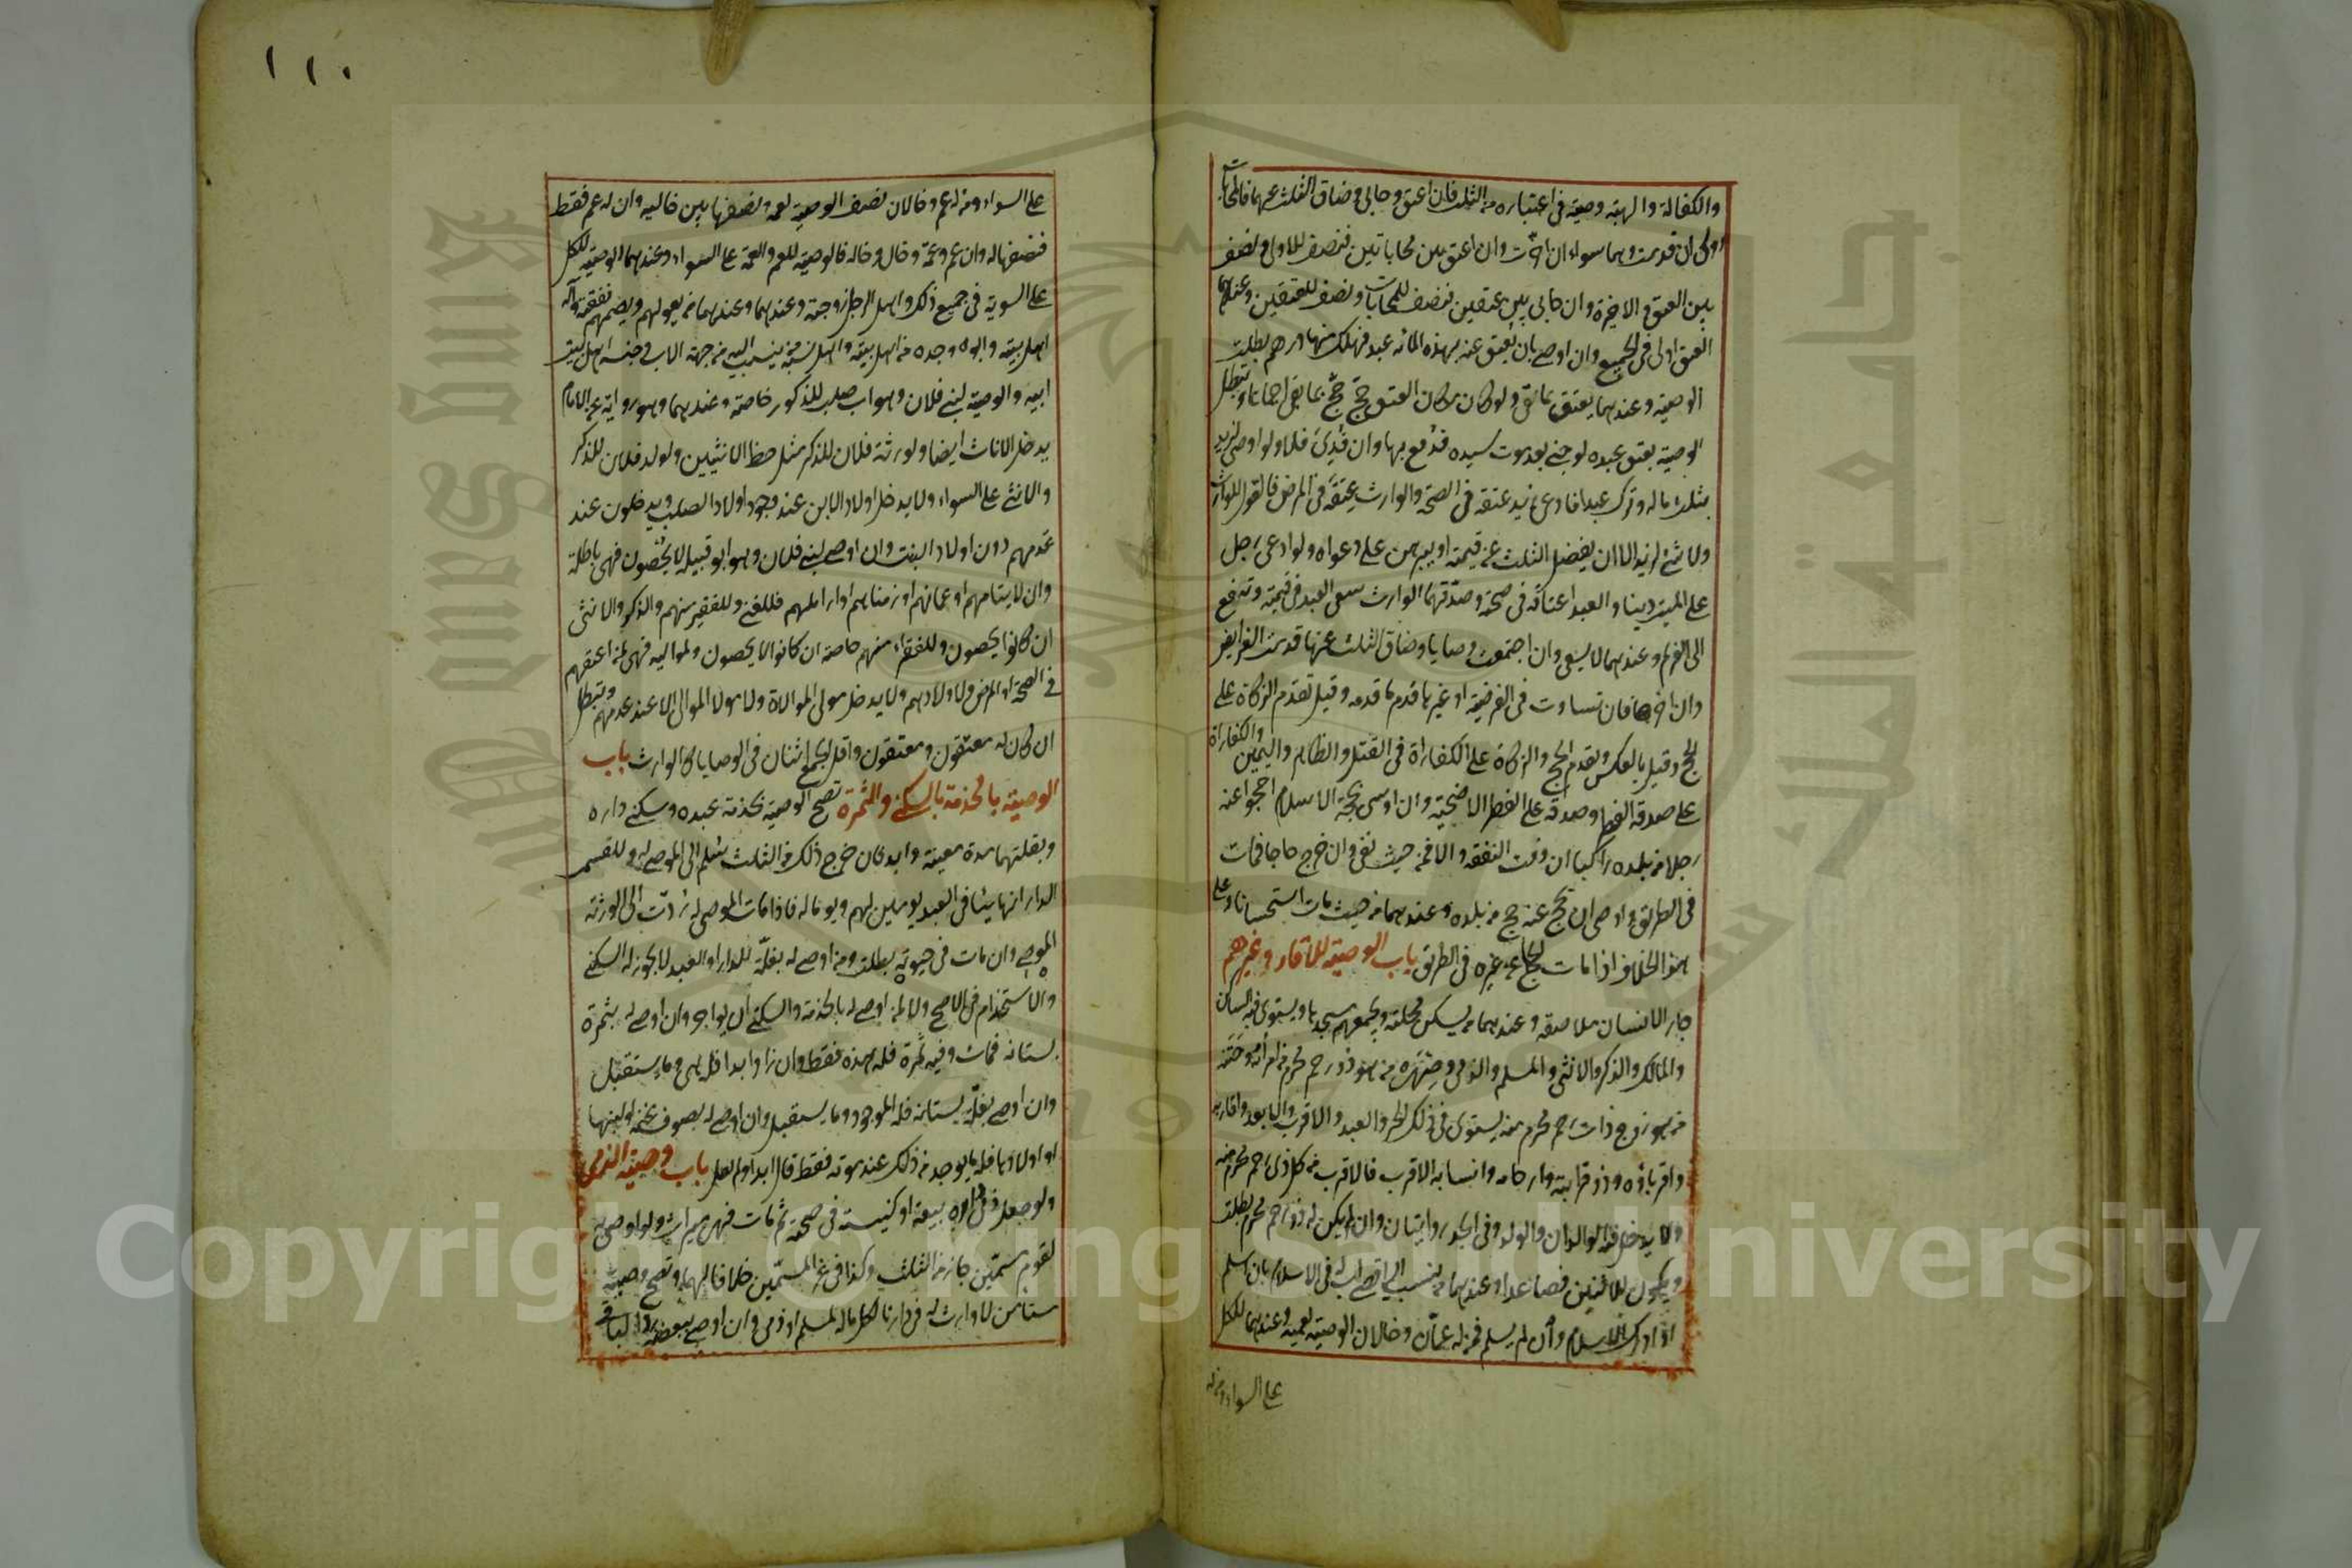 والكفالة والهبة وصية في اعتباره من الثلث فان اعتق وحابى وضاق الثلث عنهما فالمحابات
اولى ان قدمت وهما سواء ان اخرت وان اعتق بين محاباتين فنصف للاولى ونصف
بين العتق والاخيرة وان حابى بين عتقين فنصف للمحابات ونصف للعتقين وعندهما
العتق اولى في الجميع وان اوصى بان يعتق عنه بهذه المائة عبد فهلك منها درهم بطلت
الوصية وعندهما يعتق بما بقي ولو كان مكان العتق حج حج بما بقي اجماعا وتبطل
الوصية بعتق عبده لو جنى بعد موت سيده فدفع بها وان فدى فلا ولو اوصى لزيد
بثلث ماله وترك عبدا فادعى زيد عتقه في الصحة والوارث عتقه في المرض فالقول للوارث
ولا شئ لزيد الا ان يفضل الثلث عن قيمته او يبرهن على دعواه ولو ادعى رجل
على الميت دينا والعبد اعتاقه في صحته وصدقهما الوارث سعى العبد في قيمته وتدفع
الى الغريم وعندهما لا يسعى وان اجتمعت وصايا وضاق الثلث عنها قدمت الفرايض
وان اخرها فان تساوت في الفرضية او غيرها قدم ما قدمه وقيل تقدم الزكاة على
الحج وقيل بالعكس ويقدم الحج والزكاة على الكفاراة في القتل والظهار واليمين والكفاراة
على صدقة الفطر وصدقة على الفطر الاضحية وان اوصى بحجة الاسلام احجوا عنه
رجلا من بلده راكبا ان وفت النفقة والا فمن حيث تفي وان خرج حاجا فمات
في الطريق واوصى ان يحج عنه حج من بلده وعندهما من حيث مات استحسانا وعلى
هذا الخلاف اذا مات الحاج عن غيره في الطريق باب الوصية للاقارب وغيرهم
جار الانسان ملاصقه وعندهما من يسكن محلته ويجمعهم مسجدها ويستوي فيه الساكن
والمالك والذكر والانثى والمسلم والذمي وصهره من هو ذو رحم محرم من امرأته وختنه
من هو زوج ذات رحم محرم منه يستوي في ذلك الحر والعبد والاقرب والابعد واقاربه
واقرباؤه وذو قرابته وارحامه وانسابه الاقرب فالاقرب من كل ذي رحم محرم منه
ولا يدخل فيه الوالدان والولد وفي الجد روايتان وان لم يكن له ذو رحم محرم بطلت
ويكون للاثنين فصاعدا وعندهما من ينسب الى اقصى اب له في الاسلام بان اسلم
او ادرك الاسلام وان لم يسلم فمن له عمان وخالان الوصية لعميه وعندهما للكل
على السواء ومن له
١١٠
على السواء ومن له عم وخالان نصف الوصية لعمه ونصفها بين خاليه وان له عم فقط
فنصفها له وان عم وعمة وخال وخالة فالوصية للعم والعمة على السواء وعندهما الوصية للكل
على السوية في جميع ذلك واهل الرجل زوجته وعندهما وعندهما من يعولهم ويضمهم نفقته وآله
اهل بيته وابوه وجده من اهل بيته واهل نسبه من ينسب اليه من جهة الاب وجنسه اهل بيت
ابيه والوصية لبني فلان وهو اب صلب للذكور خاصة وعندهما وهو رواية عن الامام
يدخل الاناث ايضا ولورثة فلان للذكر مثل حظ الانثيين ولولد فلان للذكر
والانثى على السواء ولا يدخل اولاد الابن عند وجود اولاد الصلب ويدخلون عند
عدمهم دون اولاد البنت وان اوصى لبني فلان وهو ابو قبيلة لا يحصون فهي باطلة
وان لايتامهم او عميانهم او زمناهم او اراملهم فللغني وللفقير منهم والذكر والانثى
ان كانوا يحصون وللفقراء منهم خاصة ان كانوا لا يحصون ولمواليه فهي لمن اعتقهم
في الصحة او المرض ولاولادهم ولا يدخل مولى الموالاة ولا مولا الموالى الا عند عدمهم وتبطل
ان كان له معتقون ومعتقون واقل الجمع اثنان في الوصايا كالوارث باب
الوصية بالخدمة بالسكنى والثمرة تصح الوصية بخدمة عبده وسكنى داره
وبغلتهما مدة معينة وابدا فان خرج ذلك من الثلث سلم الى الموصى له والا قسم
الدار اثلاثا وفي العبد يومين لهم ويوما له فاذا مات الموصى له ردت الى الورثة
الموصي وان مات في حيوته بطلت ومن اوصى له بغلة الدار او العبد لا يجوز له السكنى
والاستخدام في الاصح ولا لمن اوصى له بالخدمة والسكنى ان يواجر وان اوصى له بثمرة
بستانه فمات وفيه ثمرة فله هذه فقط وان زاد ابدا فله هي وما يستقبل
وان اوصى بغلة بستانه فله الموجود وما يستقبل وان اوصى له بصوف غنمه او لبنها
او اولادها فله ما يوجد من ذلك عند موته فقط قال ابدا او لم يقل باب وصية الذمي
ولو جعل ذمي داره بيعة او كنيسة في صحته ثم مات فهي ميراث ولو اوصى به
لقوم مسمين جاز من الثلث وكذا في غير المسمين خلافا لهما وتصح وصية
مستأمن لا وارث له في دارنا لكل ماله لمسلم او ذمي وان اوصى ببعضه رد الباقي